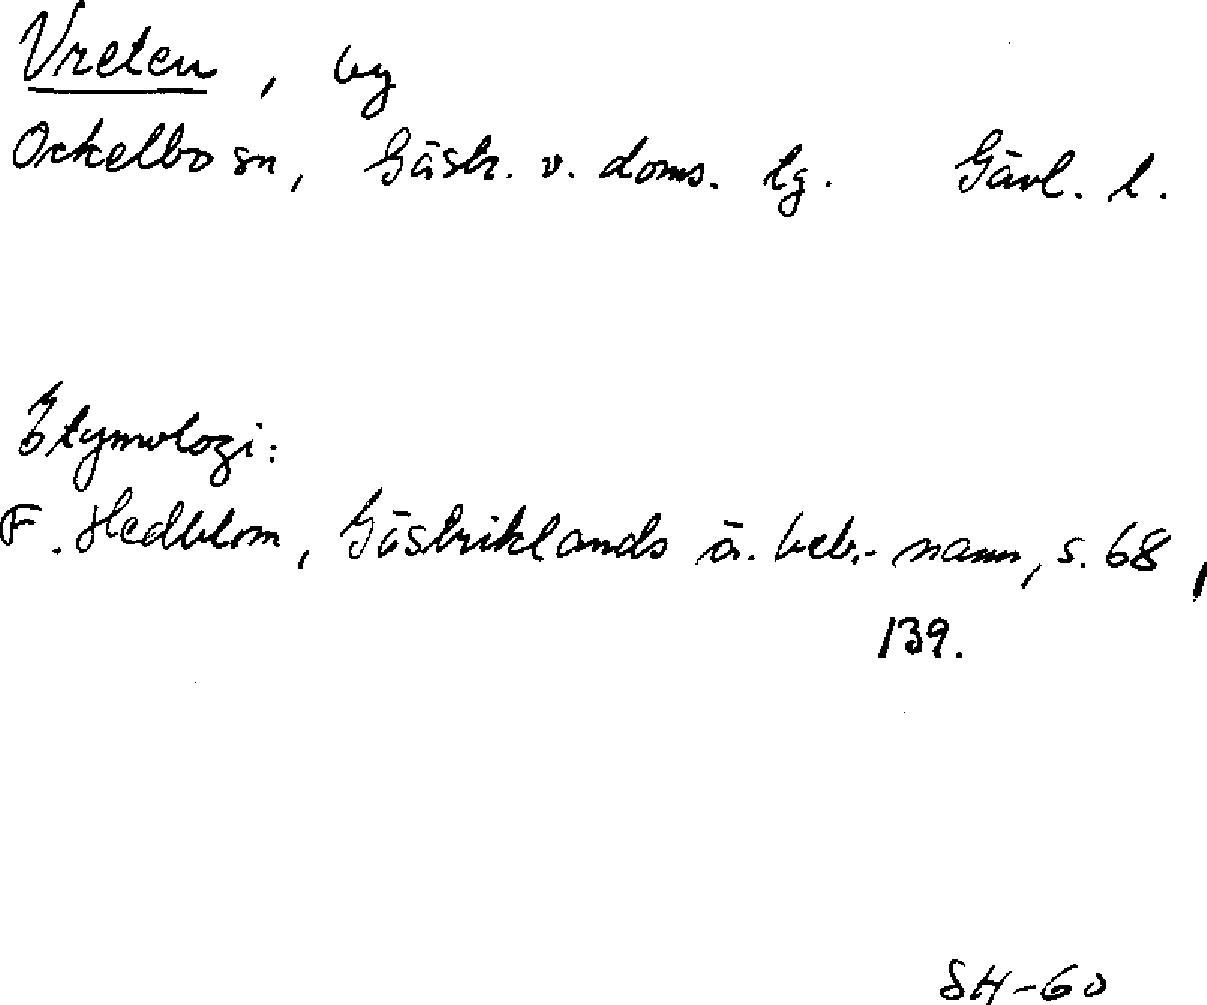 Vreten, by
Ockelbo sn, Gästr. v. doms. lg. Gävl. l.
Etymologi:
F. Hedblom, Gästriklands ä. beb.- namn, s. 68,
139.
SH-60